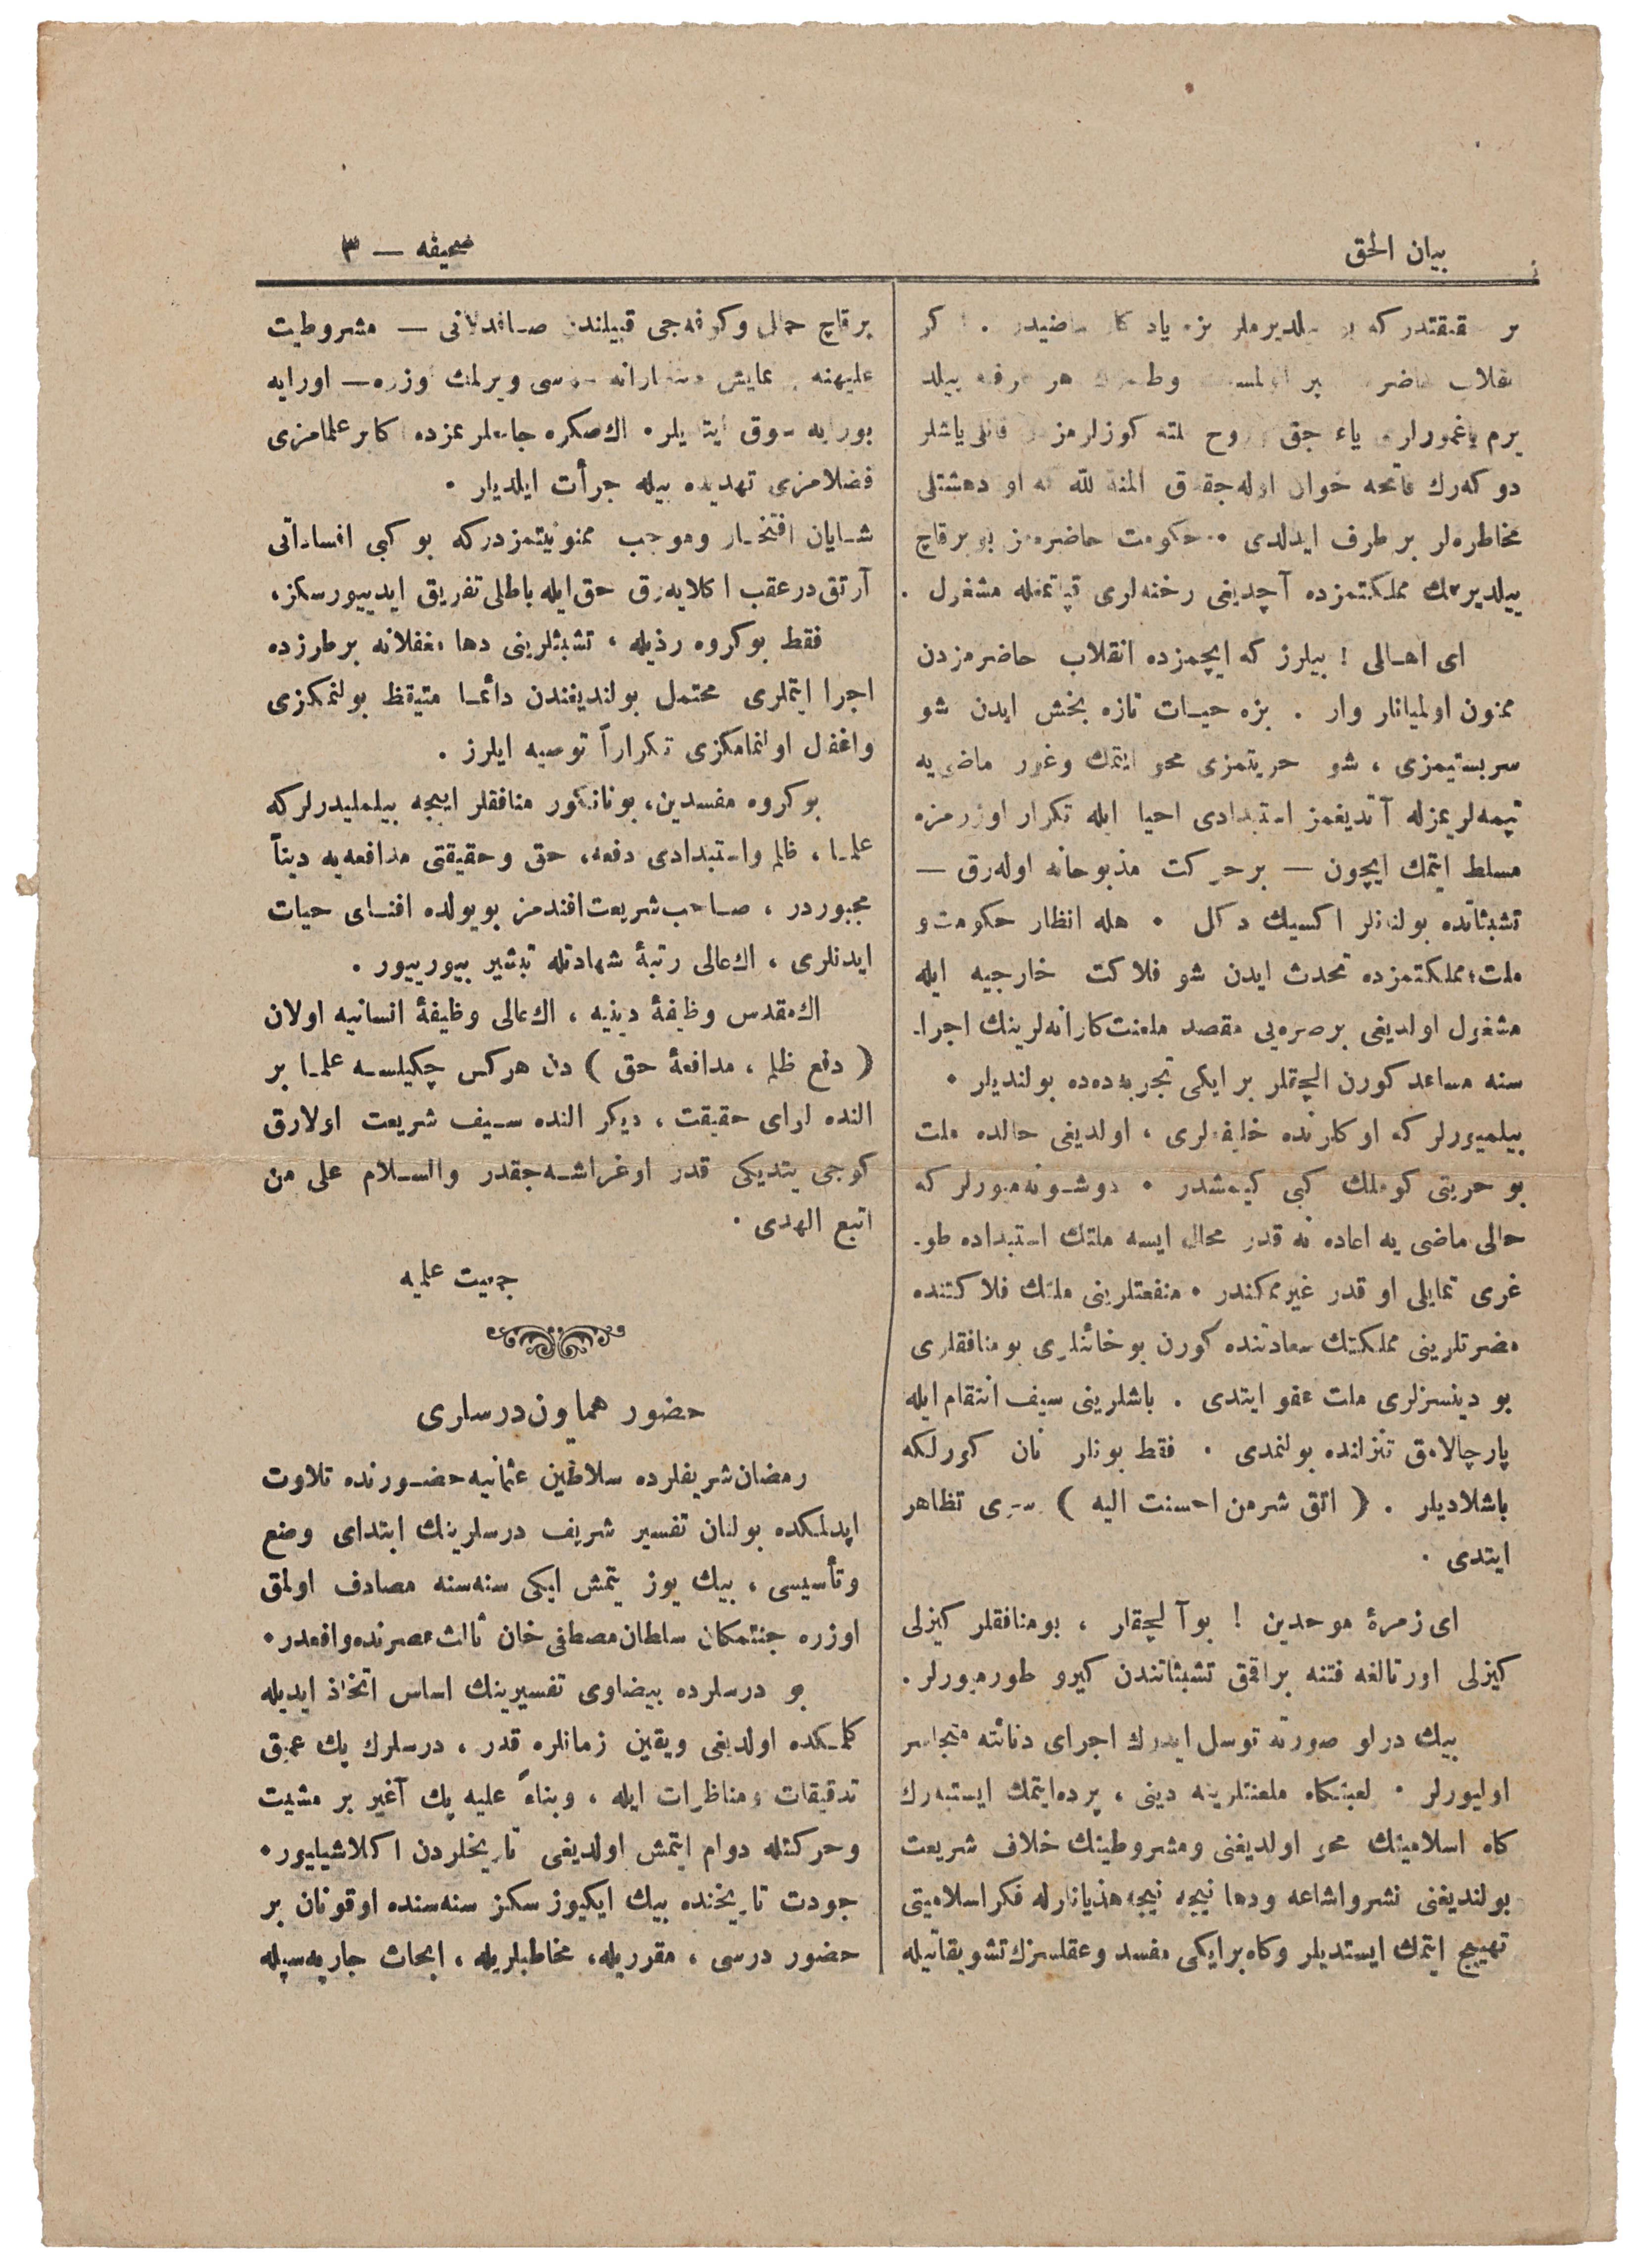 بيان الحق
صحيفه — ٣
بر
بر
دوكه‌رك فاتحه خوان اوله‌جقدق المنة لله كه او دهشتلى
مخاطره‌لر بر طرف ايدلدى . حكومت حاضره‌مز بو بر قاچ
ييلديرمك مملكتمزده آچديغى رخنه‌لرى قپاتمغله مشغول .
اى اهالى ! بيلرز كه ايچمزده انقلاب حاضرمزدن
ممنون اولميانلر وار . بزه حيات تازه بخش ايدن شو
سربستيمزى ، شو حريتمزى محو ايتمك وغرر ماضى‌يه
تپمه‌لريمزله آتديغمز استبدادى احيا ايله تكرار اوزرمزه
مسلط ايتمك ايچون — بر حركت مذبوحانه اوله‌رق —
تشبثاتده بولنانلر اكسيك دكل . هله انظار حكومت و
ملت ؛ مملكتمزده تحدث ايدن شو فلاكت خارجيه ايله
مشغول اولديغى بر صره‌يى مقصد ملعنت‌كارانه‌لرينك اجرا-
سنه مساعد كورن آلچقلر بر ايكى تجربه‌ده‌ده بولنديلر .
بيلميورلر كه اوكلرنده خليفه‌لرى ، اولديغى حالده ملت
بو حريتى كوملك كبى كيمشدر . دوشونه‌ميورلر كه
حالى ماضى يه اعاده نه قدر محال ايسه ملتك استبداده طو-
غرى تمايلى او قدر غيرممكندر . منفعتلرينى ملتك فلاكتنده
مضرتلرينى مملكتك سعادتنده كورن بو خائنلرى بو منافقلرى
بو دينسزلرى ملت عفو ايتدى . باشلرينى سيف انتقام ايله
پارچالامق تنزلنده بولنمدى . فقط بونلر نان كورلكه
باشلاديلر . ( اتق شر من احسنت اليه ) سرى تظاهر
ايتدى .
اى زمرهٔ موحدين ! بو آلچقلر ، بو منافقلر كيزلى
كيزلى اورتالغه فتنه براقمق تشبثاتندن كيرو طورميورلر .
بيك درلو صورته توسل ايدرك اجراى دنائته متجاسر
اوليورلر . لعبتكاه ملعنتلرينه دينى ، پرده ايتمك ايستيه‌رك
كاه اسلاميتك محو اولديغنى ومشروطيتك خلاف شريعت
بولنديغنى نشر واشاعه ودها نيجه نيجه هذيانلرله فكر اسلاميتى
تهييج ايتمك ايستديلر وكاه بر ايكى مفسد وعقلسزك تشويقاتيله
بر قاچ حمال وكوفه‌جى قبيلندن صافدلانى — مشروطيت
عليهنه وير لمك اوزره — اورايه
بورايه سوق ايتديلر . اك صكره جامعلرمزده اكابر علمامزى
فضلامزى تهديده بيله جرأت ايلديلر .
شايان افتخار وموجب ممنونيتمزدركه بو كبى افساداتى
آرتق درعقب اكلايه‌رق حق ايله باطلى تفريق ايدييورسكز .
فقط بو كروه رذيله ، تشبثلرينى دها مغفلانه بر طرزده
اجرا ايتملرى محتمل بولنديغندن دائما متيقظ بولنمكزى
واغفال اولنمامكزى تكراراً توصيه ايلرز .
بو كروه مفسدين ، بو نانكور منافقلر اييجه بيلمليدرلر كه
علما ، ظلم واستبدادى دفعه ، حق وحقيقتى مدافعه‌يه ديناً
مجبوردر ، صاحب شريعت افندمز بو يولده افناى حيات
ايدنلرى ، اك عالى رتبهٔ شهادتله تبشير بيورييور .
اك مقدس وظيفهٔ دينيه ، اك عالى وظيفهٔ انسانيه اولان
( دفع ظلم ، مدافعهٔ حق ) دن هركس چكيلسه علما بر
النده لواى حقيقت ، ديكر النده سيف شريعت اولارق
كوجى يتديكى قدر اوغراشه‌جقدر والسلام على من
اتبع الهدى .
جمعيت علميه
حضور همايون درسلرى
رمضان شريفلرده سلاطين عثمانيه حضورنده تلاوت
ايدلمكده بولنان تفسير شريف درسلرينك ابتداى وضع
وتأسيسى ، بيك يوز يتمش ايكى سنه‌سنه مصادف اولمق
اوزره جنتمكان سلطان مصطفى خان ثالث عصرنده واقعدر .
بو درسلرده بيضاوى تفسيرينك اساس اتخاذ ايديله
كلمكده اولديغى ويقين زمانلره قدر ، درسلرك پك عميق
تدقيقات ومناظرات ايله ، وبناءً عليه پك آغير بر مشيت
وحركتله دوام ايتمش اولديغى تاريخلردن اكلاشيلييور .
جودت تاريخنده بيك ايكيوز سكز سنه‌سنده اوقونان بر
حضور درسى ، مقرريله ، مخاطبلريله ، ابحاث جاريه‌سيله